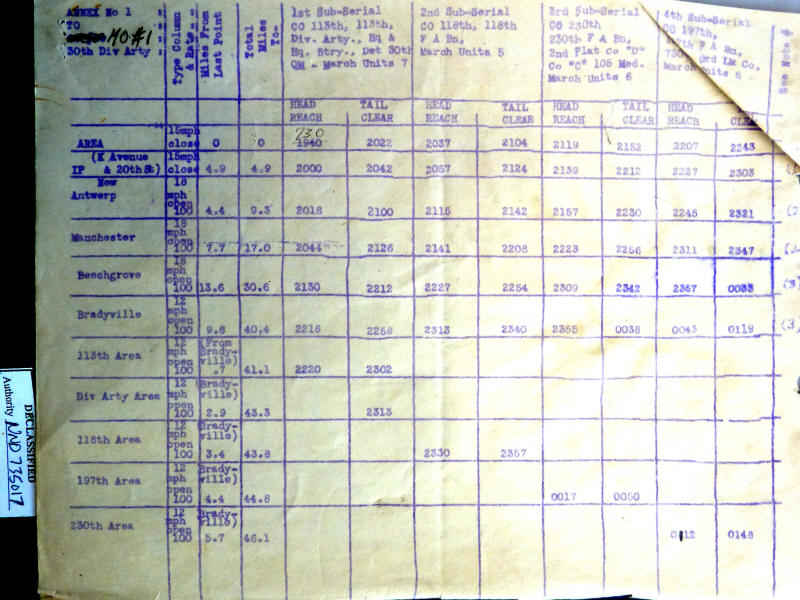 ANNEX No 1 :
TO :
MO #1 :
30th Div Arty :
Type Column & Rate
Miles From Last Point
Total Miles To-
1st Sub-Serial
CO 113th, 113th,
Div. Arty., Hq &
Hq. Btry., Det 30th
QM - March Units 7
2nd Sub-Serial
CO 118th, 118th
F A Bn,
March Units 5
3rd Sub-Serial
CO 230th
230th F A Bn,
2nd Plat Co "D"
Co "C" 105 Med.
March Units 6
4th Sub-Serial
CO 197th,
F A Bn,
3rd LM Co,
March Units 6
See Note #
HEAD REACH TAIL CLEAR HEAD REACH TAIL CLEAR HEAD REACH TAIL CLEAR HEAD REACH
AREA 15mph close 0 0 730 1940 2022 2037 2104 2119 2152 2207 2243
(K Avenue
IP & 20th St) 15mph close 4.9 4.9 2000 2042 2057 2124 2139 2212 2227 2303
New
Antwerp 18 mph open 100 4.4 9.3 2018 2100 2115 2142 2157 2230 2245 2321 (2
Manchester 18 mph open 100 7.7 17.0 2044 2126 2141 2208 2223 2256 2311 2347
Beechgrove 18 mph open 100 13.6 30.6 2130 2212 2227 2254 2309 2342 2357 0033 (3)
Bradyville 12 mph open 100 9.8 40.4 2216 2258 2313 2340 2355 0038 0043 0119 (3)
113th Area 12 mph open 100 (From Bradyville) .7 41.1 2220 2302
Div Arty Area 12 mph open 100 (Bradyville) 2.9 43.3 2313
118th Area 12 mph open 100 (Bradyville) 3.4 43.8 2330 2357
197th Area 12 mph open 100 (Bradyville) 4.4 44.8 0017 0050
230th Area 12 mph open 100 (Bradyville) 5.7 46.1 0112 0148
DECLASSIFIED
Authority NND 735017